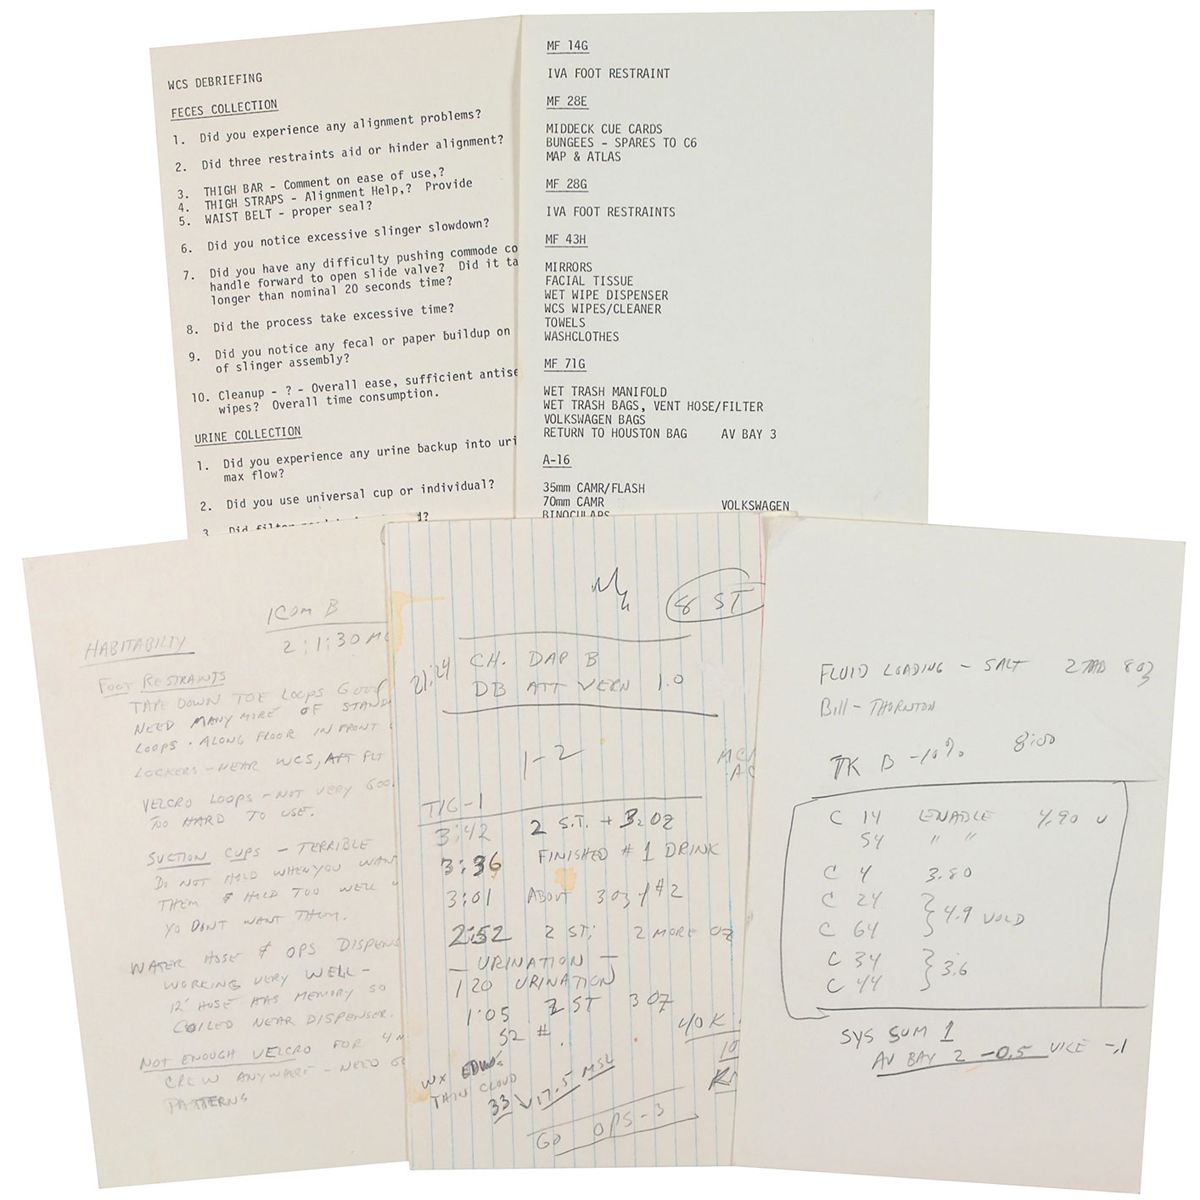 WCS DEBRIEFING
FECES COLLECTION
1. Did you experience any alignment problems?
2. Did three restraints aid or hinder alignment?
3. THIGH BAR - Comment on ease of use,?
4. THIGH STRAPS - Alignment Help,? Provide
5. WAIST BELT - proper seal?
6. Did you notice excessive slinger slowdown?
7. Did you have any difficulty pushing commode co
handle forward to open slide valve? Did it ta
longer than nominal 20 seconds time?
8. Did the process take excessive time?
9. Did you notice any fecal or paper buildup on
of slinger assembly?
10. Cleanup - ? - Overall ease, sufficient antise
wipes? Overall time consumption.
URINE COLLECTION
1. Did you experience any urine backup into uri
max flow?
2. Did you use universal cup or individual?
3. Did
MF 14G
IVA FOOT RESTRAINT
MF 28E
MIDDECK CUE CARDS
BUNGEES - SPARES TO C6
MAP & ATLAS
MF 28G
IVA FOOT RESTRAINTS
MF 43H
MIRRORS
FACIAL TISSUE
WET WIPE DISPENSER
WCS WIPES/CLEANER
TOWELS
WASHCLOTHES
MF 71G
WET TRASH MANIFOLD
WET TRASH BAGS, VENT HOSE/FILTER
VOLKSWAGEN BAGS
RETURN TO HOUSTON BAG AV BAY 3
A-16
35mm CAMR/FLASH
70mm CAMR VOLKSWAGEN
BINOCULARS
ICOM B
HABITABILTY 2:1:30 M
FOOT RESTRAINTS
TAPE DOWN TOE LOOPS GOOD
NEED MANY MORE OF STAND
LOOPS. ALONG FLOOR IN FRONT
LOCKERS - NEAR WCS, AFT FLT
VELCRO LOOPS - NOT VERY GOO
TOO HARD TO USE.
SUCTION CUPS - TERRIBLE
DO NOT HOLD WHEN YOU WAN
THEM & HOLD TOO WELL
YO DONT WANT THEM.
WATER HOSE & OPS DISPENS
WORKING VERY WELL -
12' HOSE HAS MEMORY SO
COILED NEAR DISPENSER.
NOT ENOUGH VELCRO FOR 4 M
CREW ANYWARE - NEED GO
PATTERNS
8 ST
21:24 CH. DAP B
DB ATT VERN 1.0
1-2
TIG-1
3:42 2 S.T. + 3 OZ
3:36 FINISHED #1 DRINK
3:01 ABOUT 3 OZ #2
2:52 2 ST; 2 MORE OZ
- URINATION -
120 URINATION
1:05 2 ST 3 OZ
52 #
40K
WX EDW.
THIN CLOUD
33 17.5 MSL
GO OPS-3
FLUID LOADING - SALT 2 TAB 8 OZ
Bill - THORNTON
TK B -10% 8:00
C 14 ENABLE 4.90 V
54 " "
C 4 3.80
C 24
C 64 } 4.9 VOLD
C 34
C 44 } 3.6
SYS SUM 1
AV BAY 2 -0.5 VICE -.1